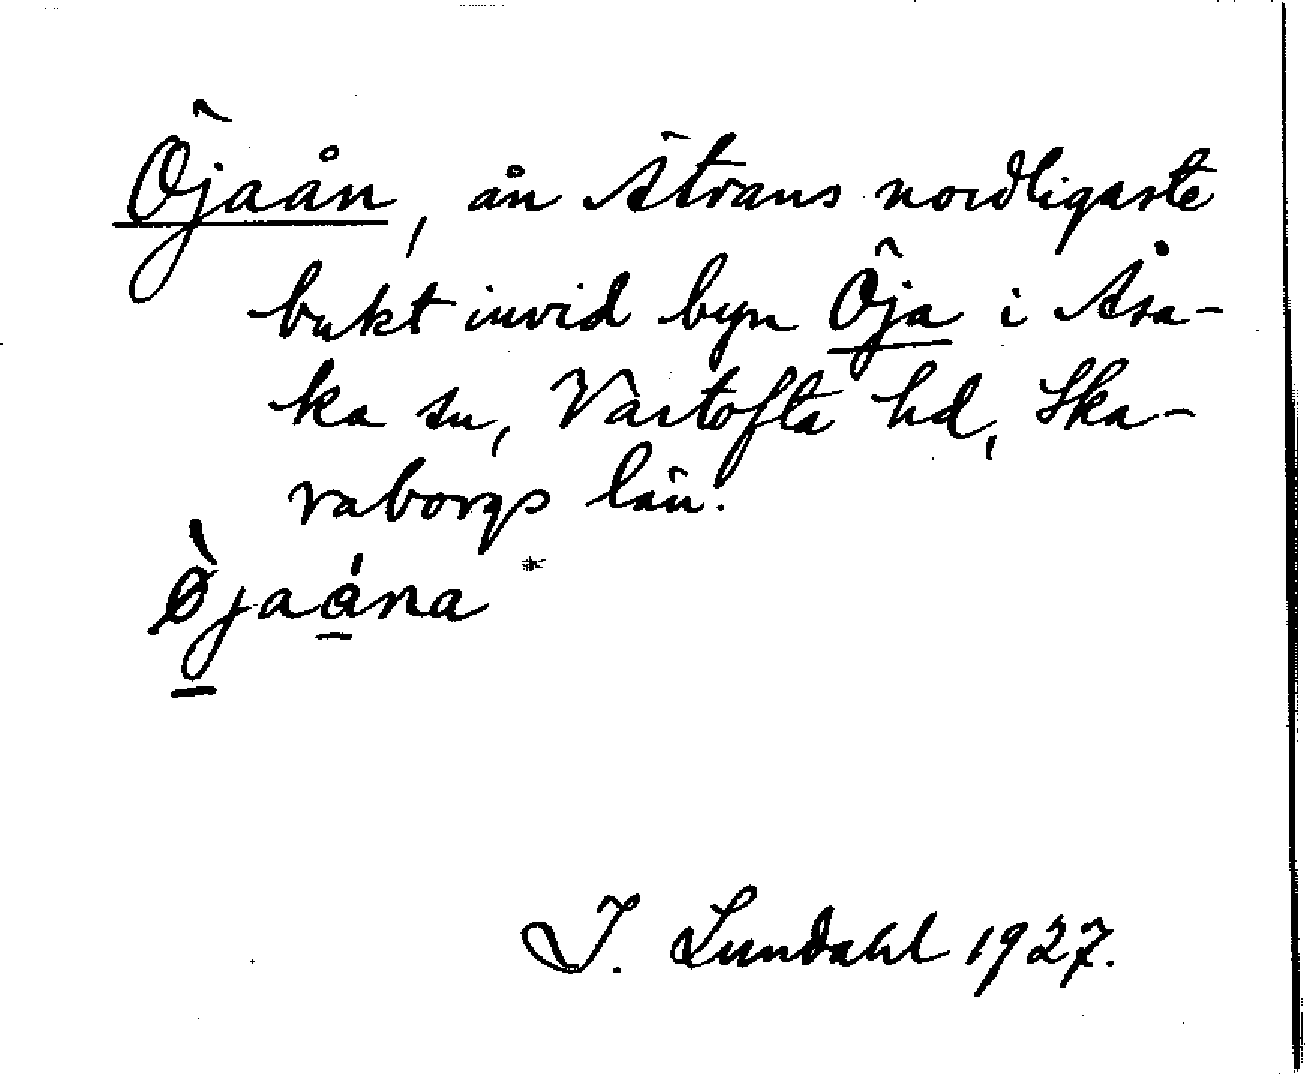 Öjaån, ån Ätrans nordligaste
bukt invid byn Öja i Åsa-
ka sn, Vartofta hd, Ska-
raborgs län.
Øjaåna *
I. Lundahl 1927.